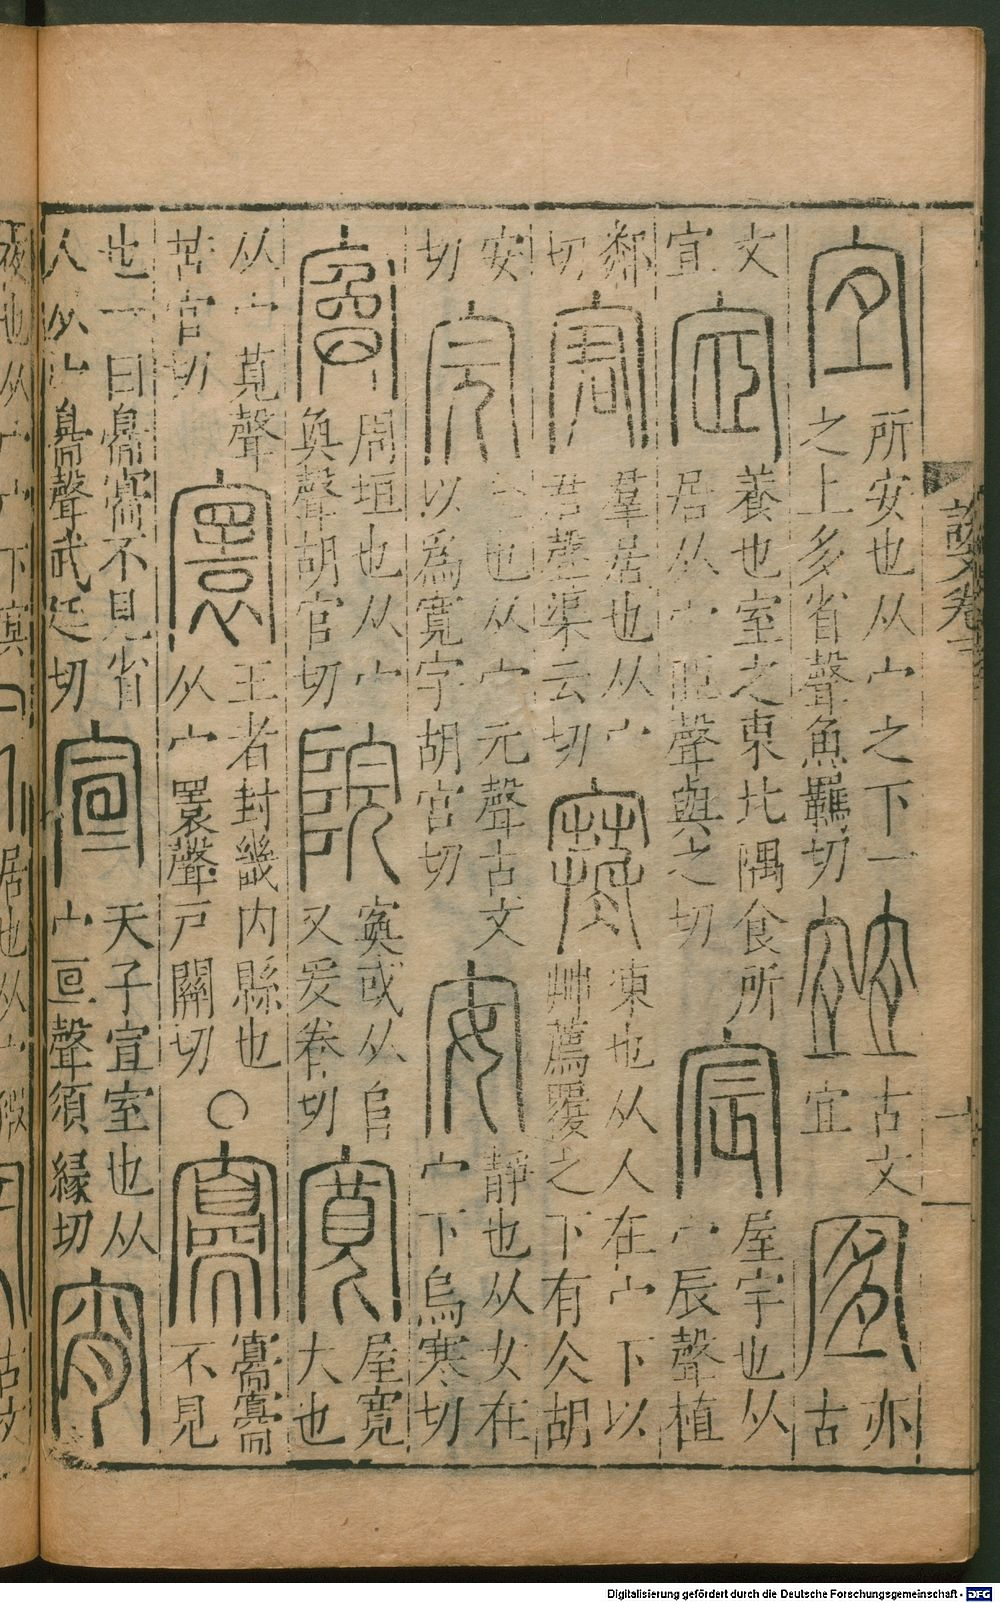 說文卷
宜 所安也从宀之下一
之上多省聲魚羈切
古文
宜
亦
古
文
宜
宧 養也室之東北隅食所
居从宀𦣞聲與之切
宸 屋宇也从
宀辰聲植
鄰
切
宭 羣居也从宀
君聲渠云切
寒 凍也从人在宀下以
茻薦覆之下有仌胡
安
切
完 全也从宀元聲古文
以爲寬字胡官切
安 靜也从女在
宀下烏寒切
寏 周垣也从宀
奐聲胡官切
院 寏或从𨸏
又爰眷切
寬 屋寬
大也
从宀萈聲
苦官切
寰 王者封畿内縣也
从宀睘聲戶關切
○
㝰 㝰㝰
不見
也一曰㝰㝰不見省
人从宀𦤝聲武延切
宣 天子宣室也从
宀亘聲須緣切
宵
Digitalisierung gefördert durch die Deutsche Forschungsgemeinschaft - DFG